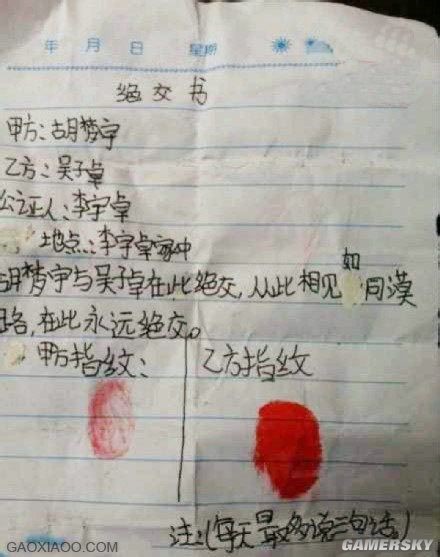 年 月 日 星期
绝交书
甲方:胡梦宇
乙方:吴子卓
公证人:李宇卓
地点:李宇卓家中
胡梦宇与吴子卓在此绝交,从此相见如同漠
路,在此永远绝交。
甲方指纹: 乙方指纹
注:(每天最多说三句话)
GAOXIAOO.COM
GAMERSKY